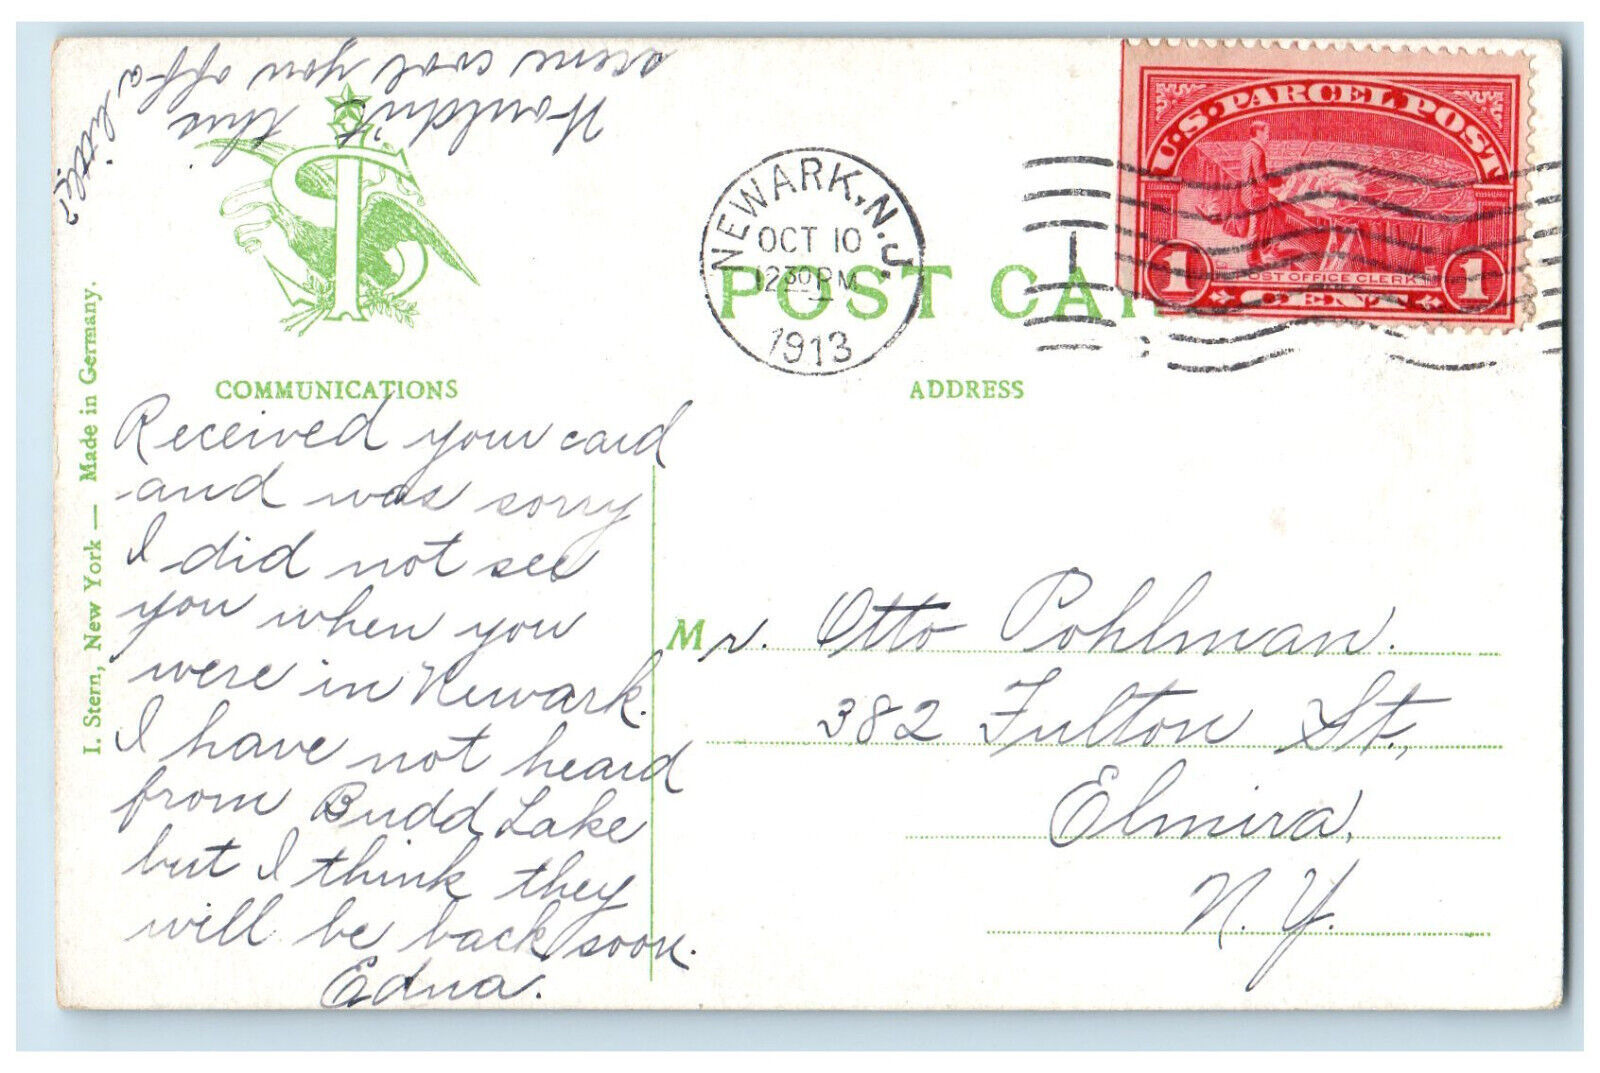 Wouldn't this
scene cool you off a
little?
NEWARK, N.J.
OCT 10
12 30 PM
1913
U.S. PARCEL POST
POST OFFICE CLERK
1 CENT 1
POST CAR
COMMUNICATIONS
ADDRESS
I. Stern, New York — Made in Germany.
Received your card
and was sorry
I did not see
you when you
were in Newark.
I have not heard
from Budd Lake
but I think they
will be back soon.
Edna.
Mr. Otto Pohlman.
382 Fulton St.,
Elmira,
N. Y.